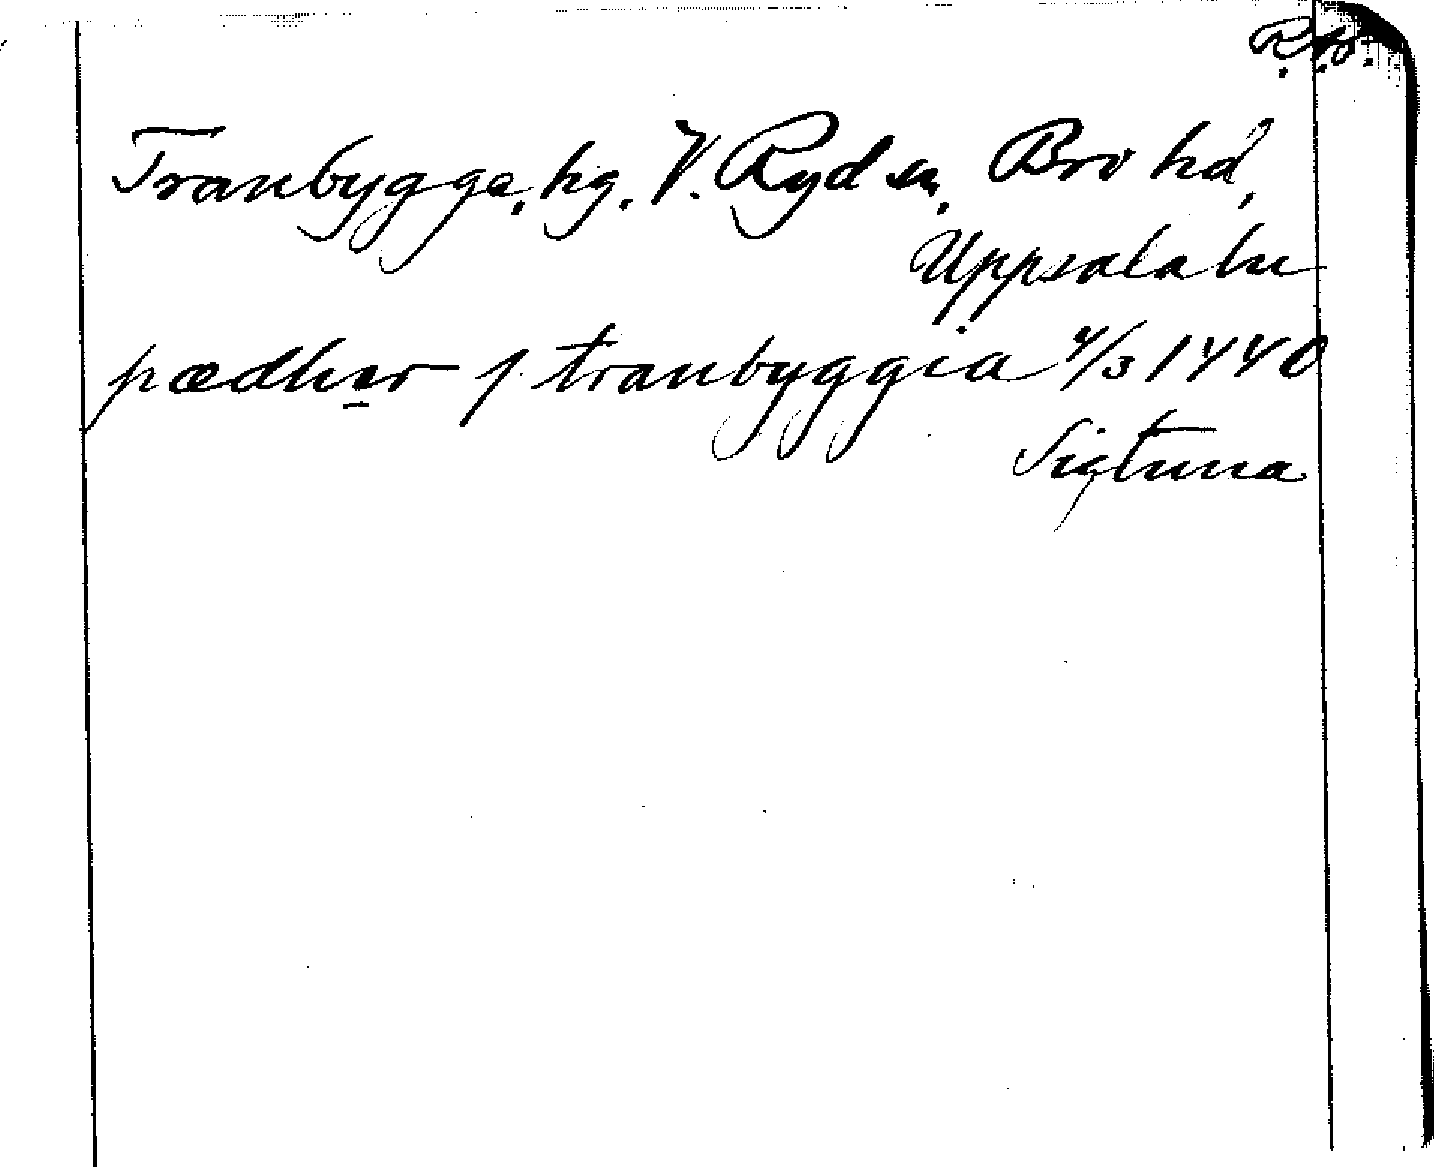 R.A.
Tranbygge, hg. V. Ryd sn, Bro hd,
Uppsala län
pædhær j tranbyggia 4/3 1440
Sigtuna